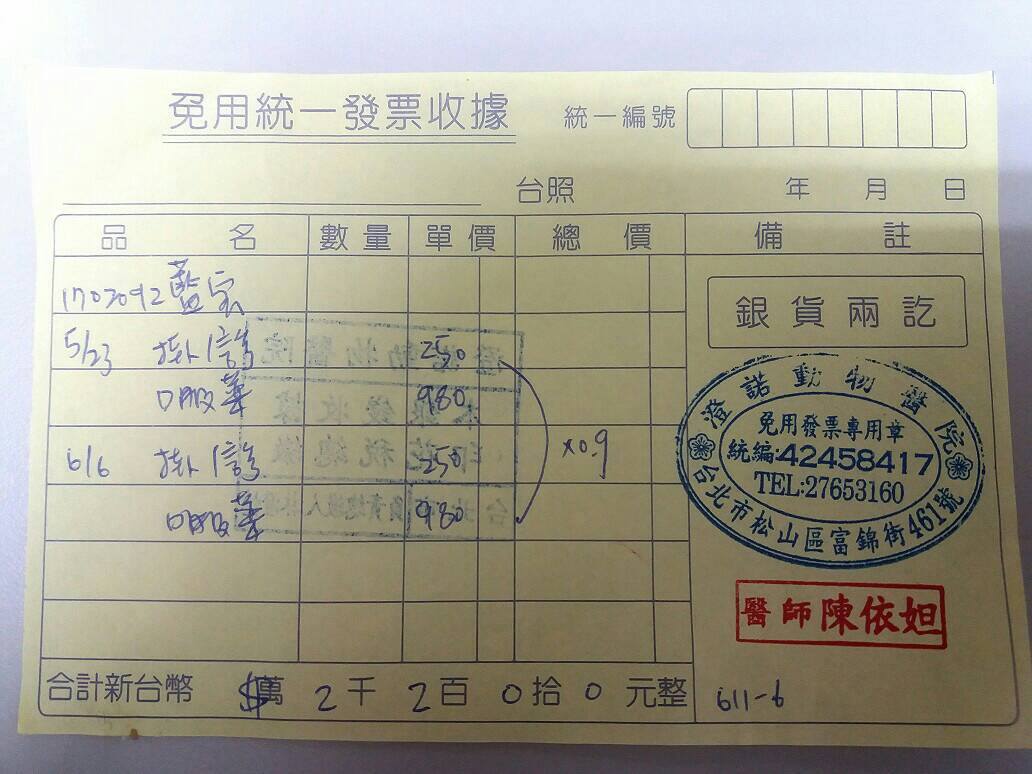 免用統一發票收據
統一編號
台照 年 月 日
品名 數量 單價 總價 備註
1702092 藍宝
銀貨兩訖
5/23 掛1診 250
口服葯 980
6/6 掛1診 250
口服葯 980
x0.9
澄諾動物醫院
免用發票專用章
統編:42458417
TEL:27653160
台北市松山區富錦街461號
醫師陳依妲
合計新台幣 $萬 2千 2百 0拾 0元整
611-6